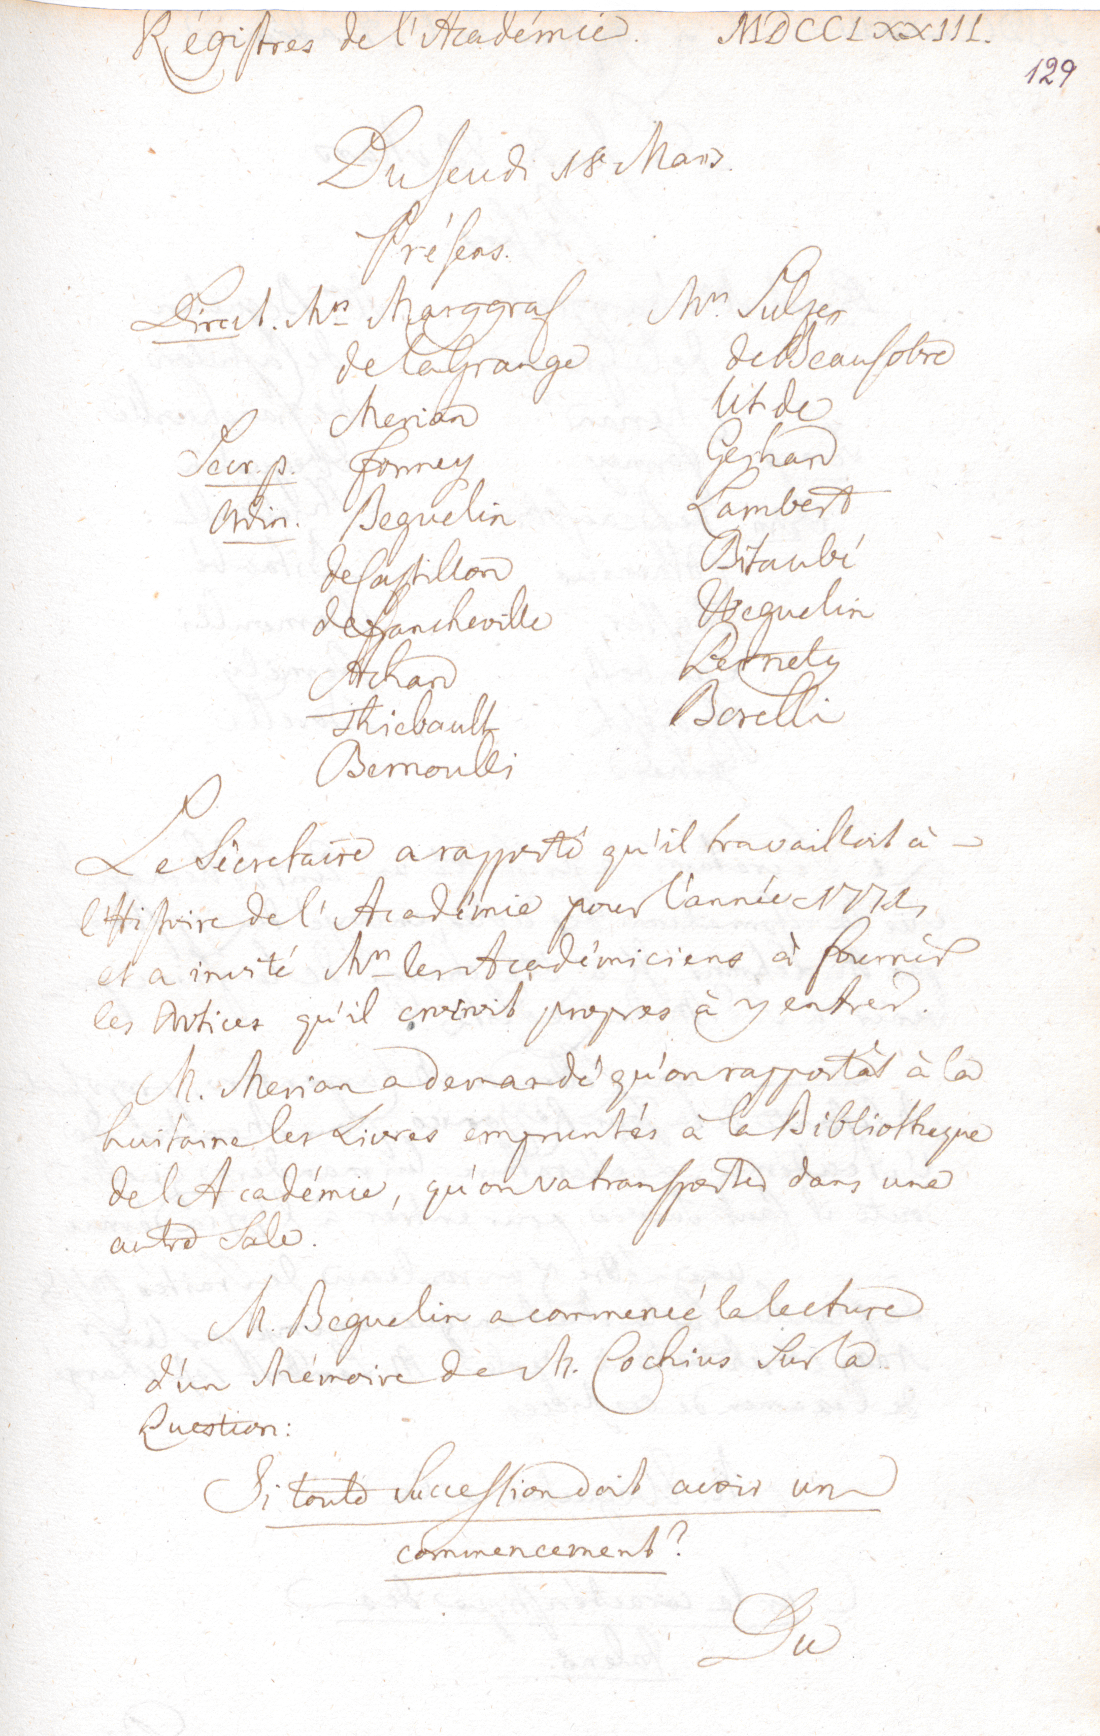 Régistres de l'Académie. MDCCLXXIII.
129
Du Jeudi 18e Mars.
Présens.
Direct. Mrs Marggraf
de la Grange
Merian
Secr. p. Formey
Ordin. Beguelin
de Castillon
de Francheville
Achard
Thiebault
Bernoulli
Mrs. Sulzer
de Beausobre
Gerhard
Lambert
Bitaubé
Weguelin
Pernety
Borelli
Le Sécretaire a rapporté qu'il travailloit à
l'Histoire de l'Académie pour l'année 1771,
et a invité Mrs les Académiciens à fournir
les Notices qu'il croiroit propres à y entrer.
M. Merian a demandé qu'on rapportât à la
huitaine les Livres empruntés à la Bibliotheque
de l'Académie, qu'on va transporter dans une
autre Sale.
M. Beguelin a commencé la lecture
d'un Mémoire de M. Cochius sur la
Question:
Si toute Succession doit avoir un
commencement?
Du